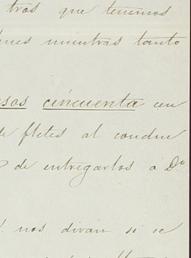 tros que tenemos
mientras tanto
sos cincuenta cen
de fletes al condu
de entregarlos a Dn
nos diran si se